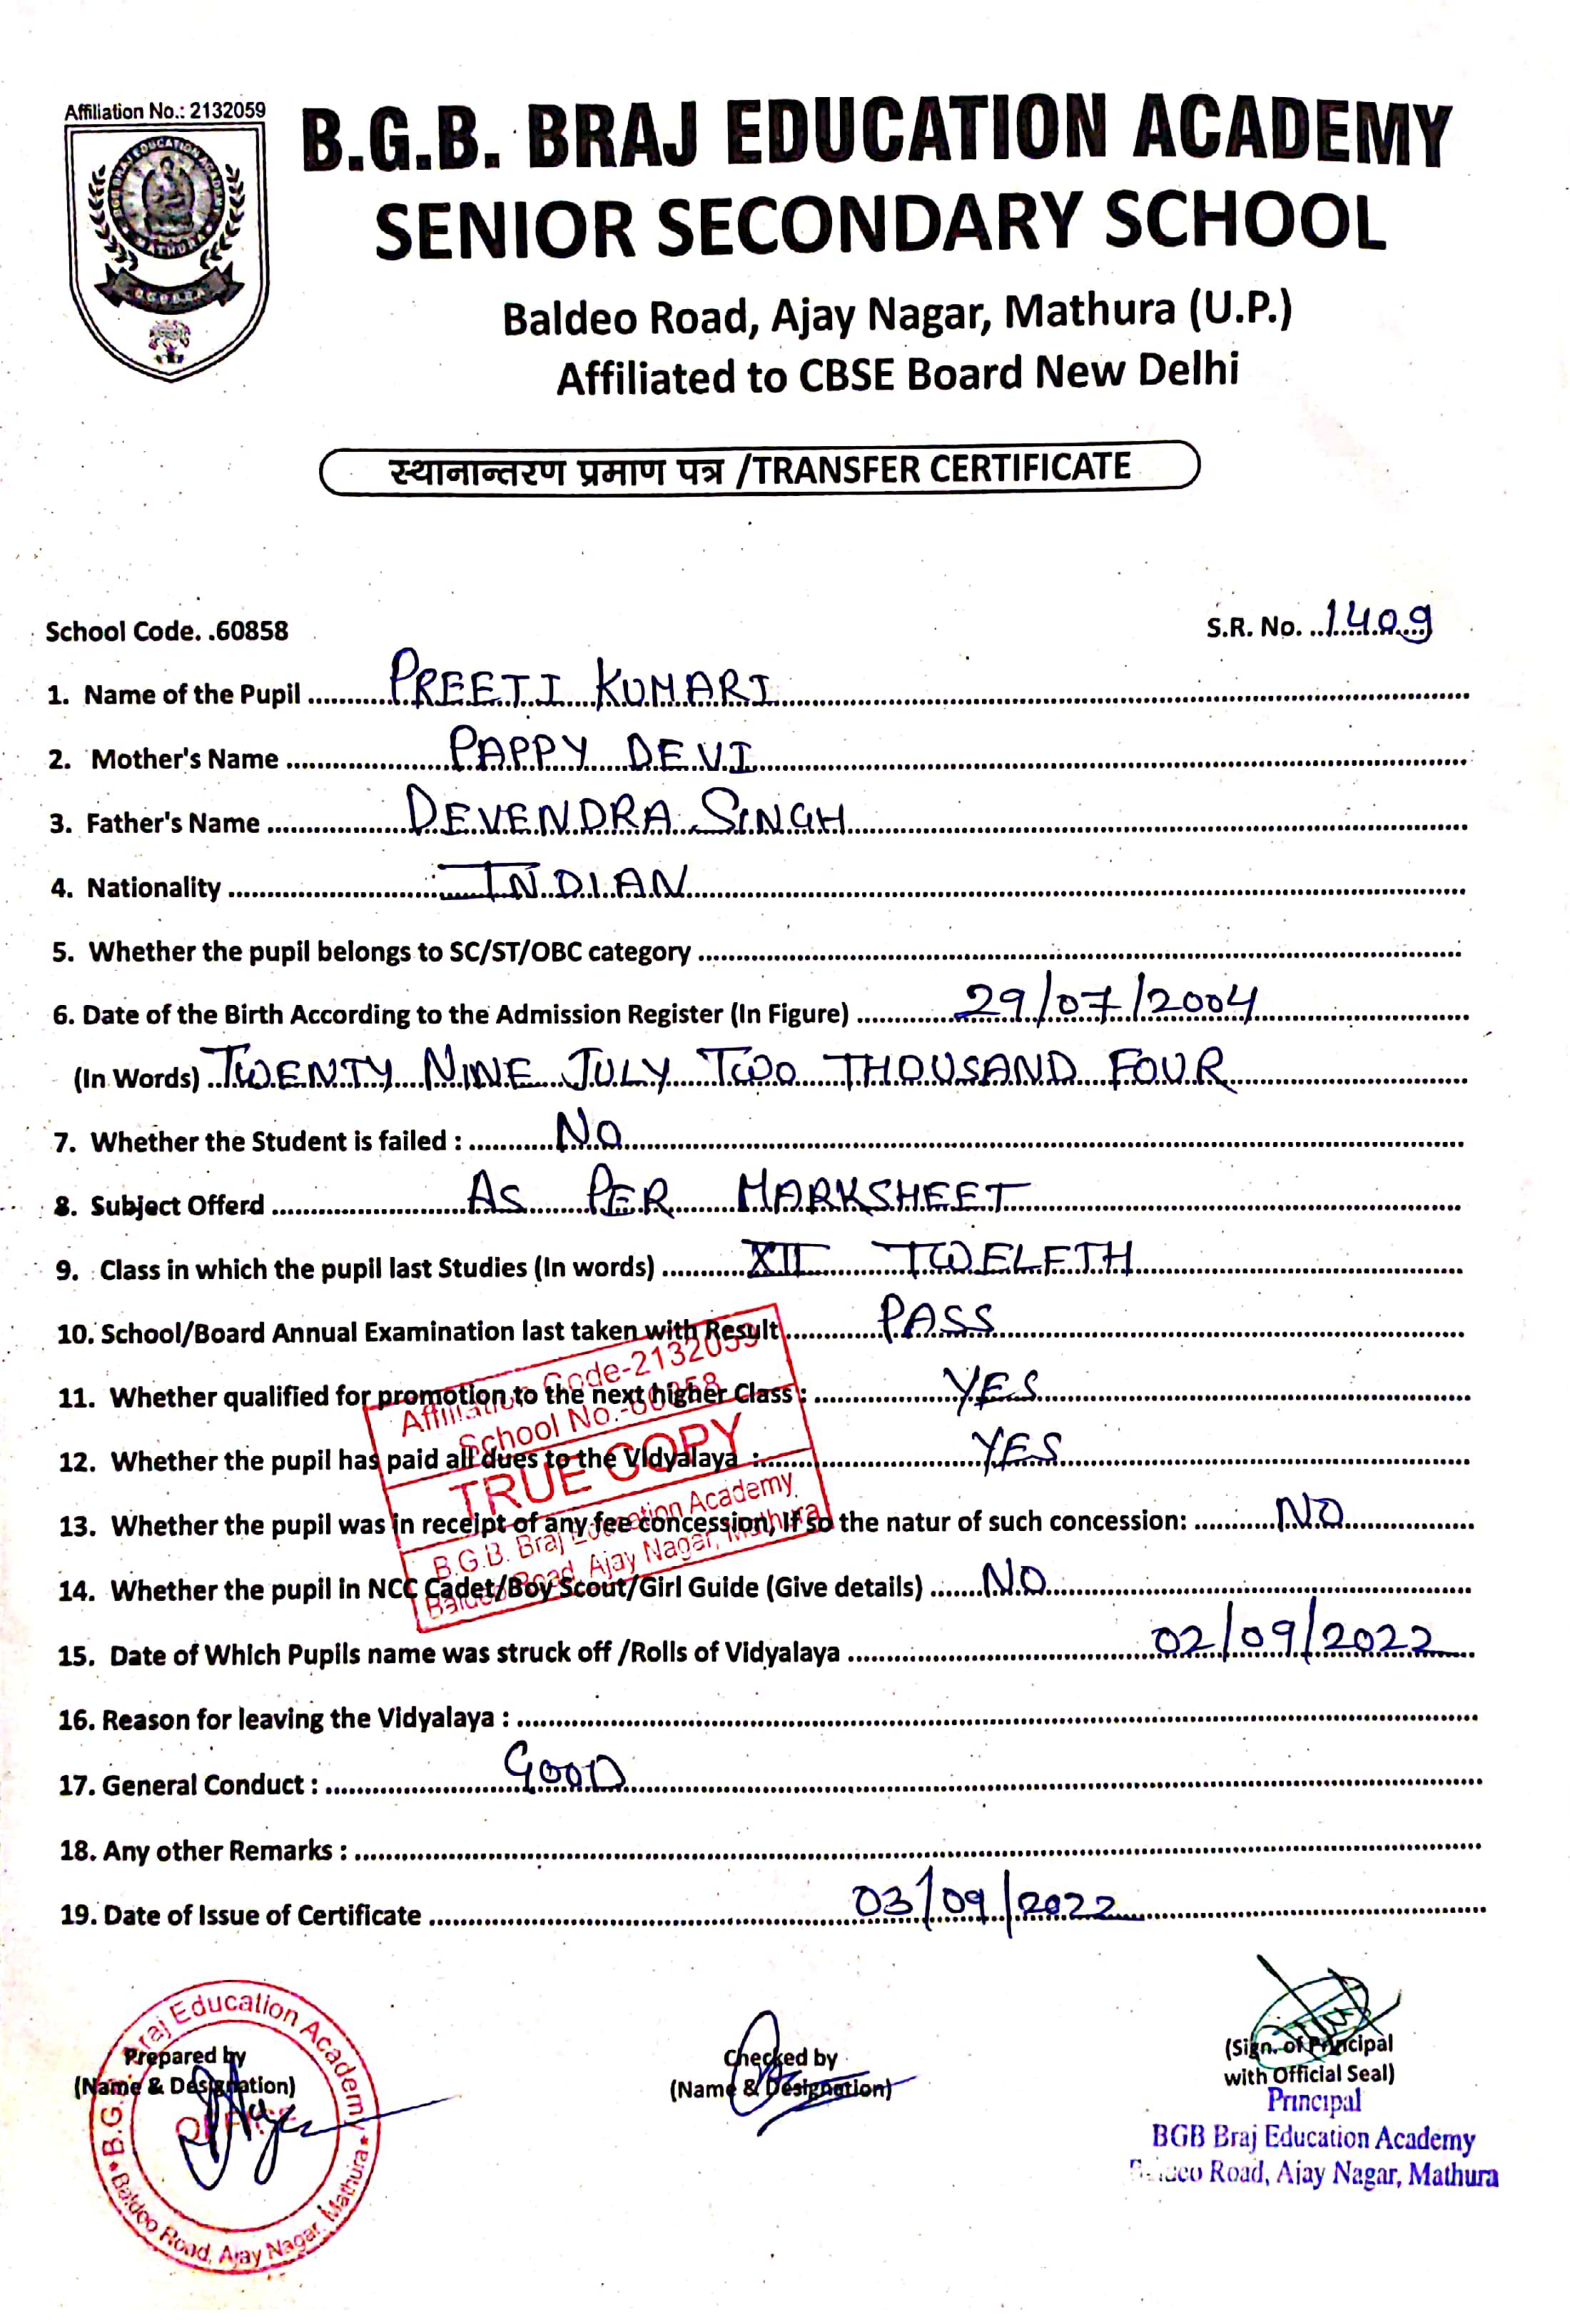 Affiliation No.: 2132059
BGB BRAJ EDUCATION ACADEMY
MATHURA
B.G.B.B.E.A
B.G.B. BRAJ EDUCATION ACADEMY
SENIOR SECONDARY SCHOOL
Baldeo Road, Ajay Nagar, Mathura (U.P.)
Affiliated to CBSE Board New Delhi
स्थानान्तरण प्रमाण पत्र /TRANSFER CERTIFICATE
School Code. .60858
S.R. No. 1409
1. Name of the Pupil PREETI KUMARI
2. Mother's Name PAPPY DEVI
3. Father's Name DEVENDRA SINGH
4. Nationality INDIAN
5. Whether the pupil belongs to SC/ST/OBC category
6. Date of the Birth According to the Admission Register (In Figure) 29/07/2004
(In Words) TWENTY NINE JULY TWO THOUSAND FOUR
7. Whether the Student is failed : NO
8. Subject Offerd AS PER MARKSHEET
9. Class in which the pupil last Studies (In words) XII TWELFTH
10. School/Board Annual Examination last taken with Result PASS
11. Whether qualified for promotion to the next higher Class : YES
12. Whether the pupil has paid all dues to the Vidyalaya : YES
13. Whether the pupil was in receipt of any fee concession, If so the natur of such concession: NO
14. Whether the pupil in NCC Cadet/Boy Scout/Girl Guide (Give details) NO
Affiliation Code-2132059
School No.-60858
TRUE COPY
B.G.B. Braj Education Academy
Baldeo Road, Ajay Nagar, Mathura
15. Date of Which Pupils name was struck off /Rolls of Vidyalaya 02/09/2022
16. Reason for leaving the Vidyalaya :
17. General Conduct : GOOD
18. Any other Remarks :
19. Date of Issue of Certificate 03/09/2022
Prepared by
(Name & Designation)
B.G.B. Braj Education Academy
Baldeo Road, Ajay Nagar, Mathura
Checked by
(Name & Designation)
(Sign. of Principal
with Official Seal)
Principal
BGB Braj Education Academy
Baldeo Road, Ajay Nagar, Mathura